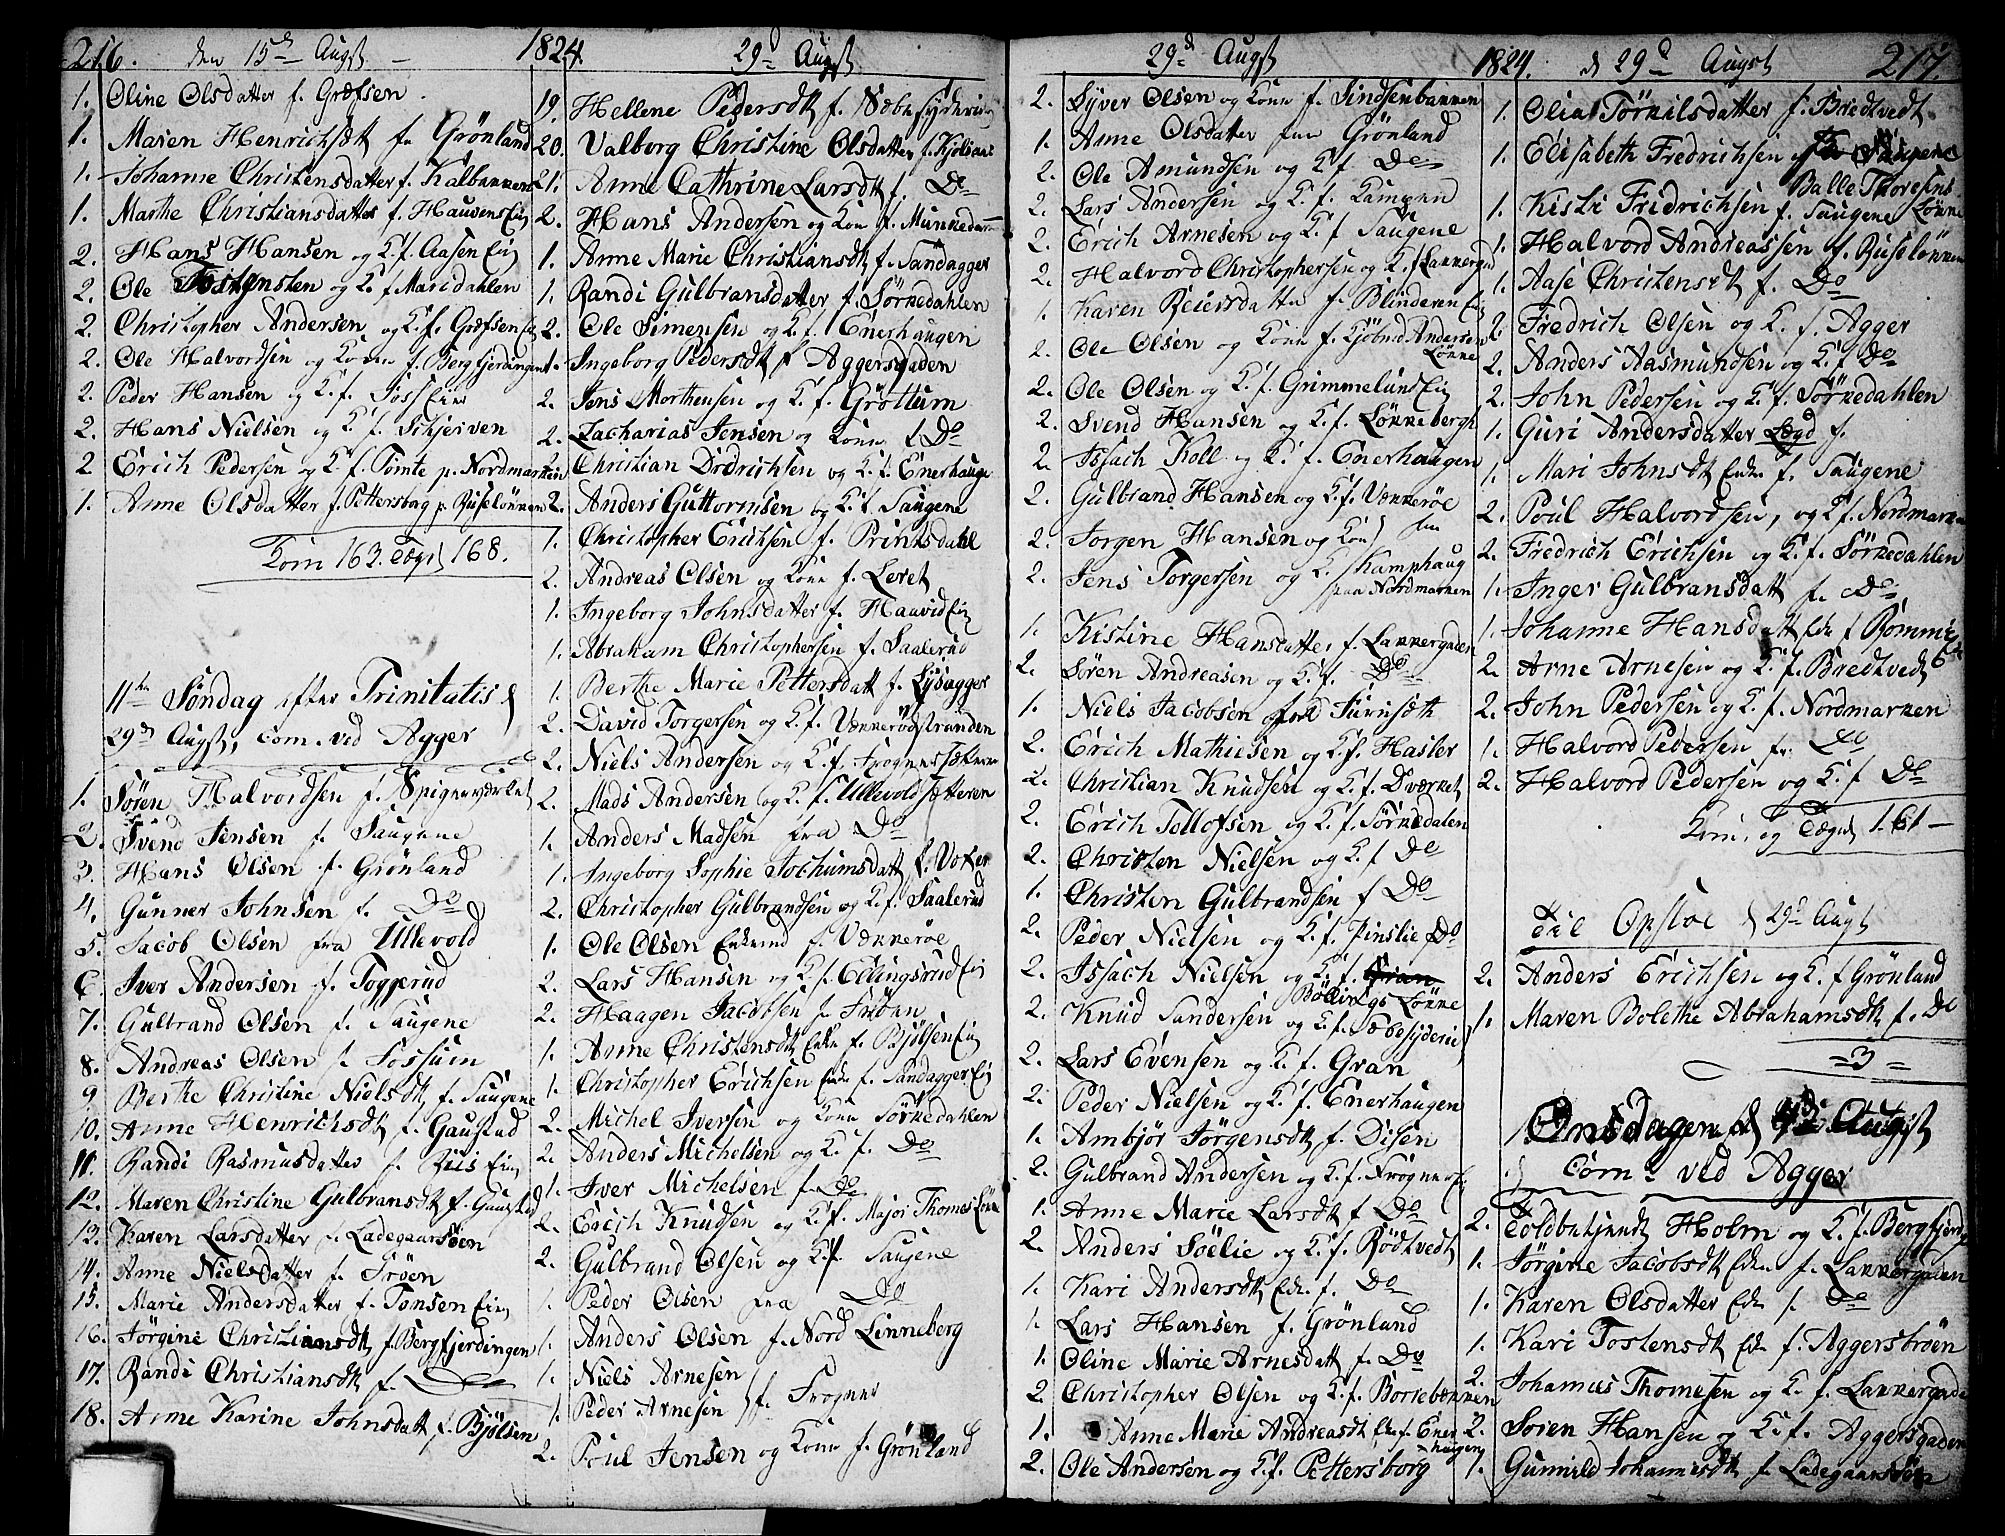 216. den 15de Augst 1824. 29d Augst
1. Oline Olsdatter f. Græfsen
1. Maren Henrichsdt fra Grönland
1. Johanne Christensdatter f. Kalbannen
1. Marthe Christiansdatter f. Hauvens Eie
2. Hans Hansen og K. f. Aasen Eie
2. Ole Tostensten og K. f. Maridahlen
2. Christopher Andersen og K. f. Græfsen Eie
2. Ole Halvordsen og Kone f. Bergfjerdingen
2. Peder Hansen og K. f.
2. Hans Nielsen og K. f. Schjerven
2 Erich Pedersen og K. f. Tömte p. Nordmarken
1. Anne Olsdatter f. Pettersborg p. Ruseløkken
Kom 163. Tægn 168.
11te Søndag efter Trinitatis d
29d Augst, com. ved Agger
1. Sören Halvordsen f. Spigerværket
2. Svend Jensen f. Saugene
3. Hans Olsen f. Grönland
4. Gunner Johnsen f. Do
5. Jacob Olsen fra Ullevold
6. Iver Andersen f. Toggerud
7. Gulbrand Olsen f. Saugene
8. Andreas Olsen f. Fossum
9. Berthe Christine Nielsdt f. Saugene
10. Anne Henrichsdt f. Gaustad
11. Randi Rasmusdatter f. Riis Eie
12. Maren Christine Gulbransdt f. Gaustad
13. Karen Larsdatter f. Ladegaarsöen
14. Anne Nielsdatter f. Tröen
15. Marie Andersdatter f. Tonsen Eie
16. Jörgine Christiansdt f. Bergfjerdingen
17. Randi Christiansdt f. Do
18. Anne Karine Johnsdatt f. Bjölsen
19. Hellene Pedersdt f.
20. Valborg Christine Olsdatter f.
21. Anne Cathrine Larsdt f. Do
2. Hans Andersen og Kone f. Munkedam
1. Anne Marie Christiansdt f. Sandagger
1. Randi Gulbransdatter f. Sörkedahlen
2. Ole Simensen og K. f. Enerhaugen
1. Ingeborg Pedersdt f. Aggersgaden
2. Jens Morthensen og K. f. Gröttum
2. Zacharias Jensen og Kone f. Do
2. Christian Didrichsen og K. f. Enerhauge
2. Anders Guttormsen og K. f. Saugene
1. Christopher Erichsen f. Printsdahl
2. Andreas Olsen og Kone f. Leret
1. Ingeborg Johnsdatter f. Haavid Eie
1. Abraham Christophersen f. Saalerud
1. Berthe Marie Pettersdatt f. Lysagger
2. David Torgersen og K. f. Vækkeröestranden
2. Niels Andersen og K. f. Frognersæteren
2. Mads Andersen og K. f. Ullevoldsætteren
1. Anders Madsen fra Do
1. Ingeborg Sophie Jochumsdatt f. Voxer
2. Christopher Gulbrandsen og K. f. Saalerud
1. Ole Olsen Enkemd f. Vækkeröe
2. Lars Hansen og K. f. Ellingsrud Eie
2. Haagen Jacobsen f. Fröen
1. Anne Christensdt Enke f. Bjølsen Eie
1. Christopher Erichsen Enke f. Sandagger Eie
2. Michel Iversen og Kone Sörkedahlen
2. Anders Michelsen og K. f. Do
1. Iver Michelsen f. Do
2. Erich Knudsen og K. f. Major Thomes Løkke
2. Gulbrand Olsen og K. f. Saugene
1. Peder Olsen fra Do
1. Anders Olsen f. Nord Linneberg
1. Niels Arnesen
1. Peder Arnesen } f. Frogner
2. Poul Jensen og Kone f. Grönland
29d Augst 1824. d 29d Augst 217.
2. Syver Olsen og Kone f. Sindsenbannen
1. Anne Olsdatter fra Grönland
2. Ole Amundsen og K. f. Do
2. Lars Andersen og K. f. Kampen
2. Erich Arnesen og K. f. Saugene
2. Halvord Christophersen og K. f. Lakkergad
1. Karen Reiersdatter f. Blinderen Eie
2. Ole Olsen og Kone f. Kjöbmd Andersens
Løkke
2. Ole Olsen og K. f. Grimmelund Eie
2. Svend Hansen og K. f. Lönnebergh
2. Issach Koll og K. f. Enerhaugen
2. Gulbrand Hansen og K. f. Vækkeröe
2. Jorgen Hansen og Kone
2. Jens Torgersen og K. f. Kamphaug
paa Nordmarken
1. Kistine Hansdatter f. Lakkergaden
2. Sören Andreasen og K. f. Do
1. Niels Jacobsen
2. Erich Mathiesen og K. f. Hasler
2. Christian Knudsen og K. f. Dværket
2. Erich Tollofsen og K. f. Sörkedalen
2. Christen Nielsen og K. f. Do
1. Christen Gulbrandsen f. Do
2. Peder Nielsen og K. f. Pinslie Do
2. Issach Nielsen og K. f. Gran
Böllings Løkke
2. Knud Sandersen og K. f. Sæbesyderie
2. Lars Evensen og K. f. Gran
2. Peder Nielsen og K. f. Enerhaugen
1. Ambjör Jörgensdt f. Disen
2. Gulbrand Andersen og K. f. Frogner Eie
1. Anne Marie Larsdt f. Do
2. Anders Söelie og K. f. Rödtvedt
1. Kari Andersdt Enke f. Do
1. Lars Hansen f. Grönland
1. Oline Marie Arnesdatt f. Do
2. Christopher Olsen og K. f. Bortebækken
1. Anne Marie Andreasdt Enke f. Ener
haugen
2. Ole Andersen og K. f. Pettersborg
1. Olia Törkilsdatter f. Bredtvedt
1. Elisabeth Fredrichsen f. Saugene
Balle Thoresens
1. Kisti Fridrichsen f. Saugene Løkke
1. Halvord Andreassen f. Ruseløkken
1. Aase Christensdt f. Do
2. Fredrich Olsen og K. f. Agger
2. Anders Aasmundsen og K. f. Do
2. John Pedersen og K. f. Sörkedahlen
1. Guri Andersdatter Lægd f.
1. Mari Johnsdt Enke f. Saugene
2. Poul Halvordsen, og K. f. Nordmarken
2. Fredrich Erichsen og K. f. Sörkedahlen
1. Inger Gulbransdatt f. Do
1. Johanne Hansdatt Enke f. Rommi Eie
2. Arne Arnesen og K. f. Bredtvedt
2. John Pedersen og K. f. Nordmarken
1. Halvord Pedersen fr. Do
2. Halvord Pedersen og K. f. Do
Kom. og Tægn 161 —
Til Opsloe d 29d Augst
2. Anders Erichsen og K. f. Grönland
1. Maren Bolethe Abrahamsdt f. Do
= 3 =
Onsdagen d Augst
Com: ved Agger
2. Toldbetjendt Holm og K. f. Bergfjerdge
1. Jörgine Jacobsdt Enke f. Lakkergaden
1. Karen Olsdatter Enke f. Do
1. Kari Tostensdt Enke f. Aggersbroen
2. Johannes Thomesen og K. f. Lakkergade
2. Soren Hansen og K. f. Aggersgaden
1. Gunnild Johannesdt f. Ladegaarsöen